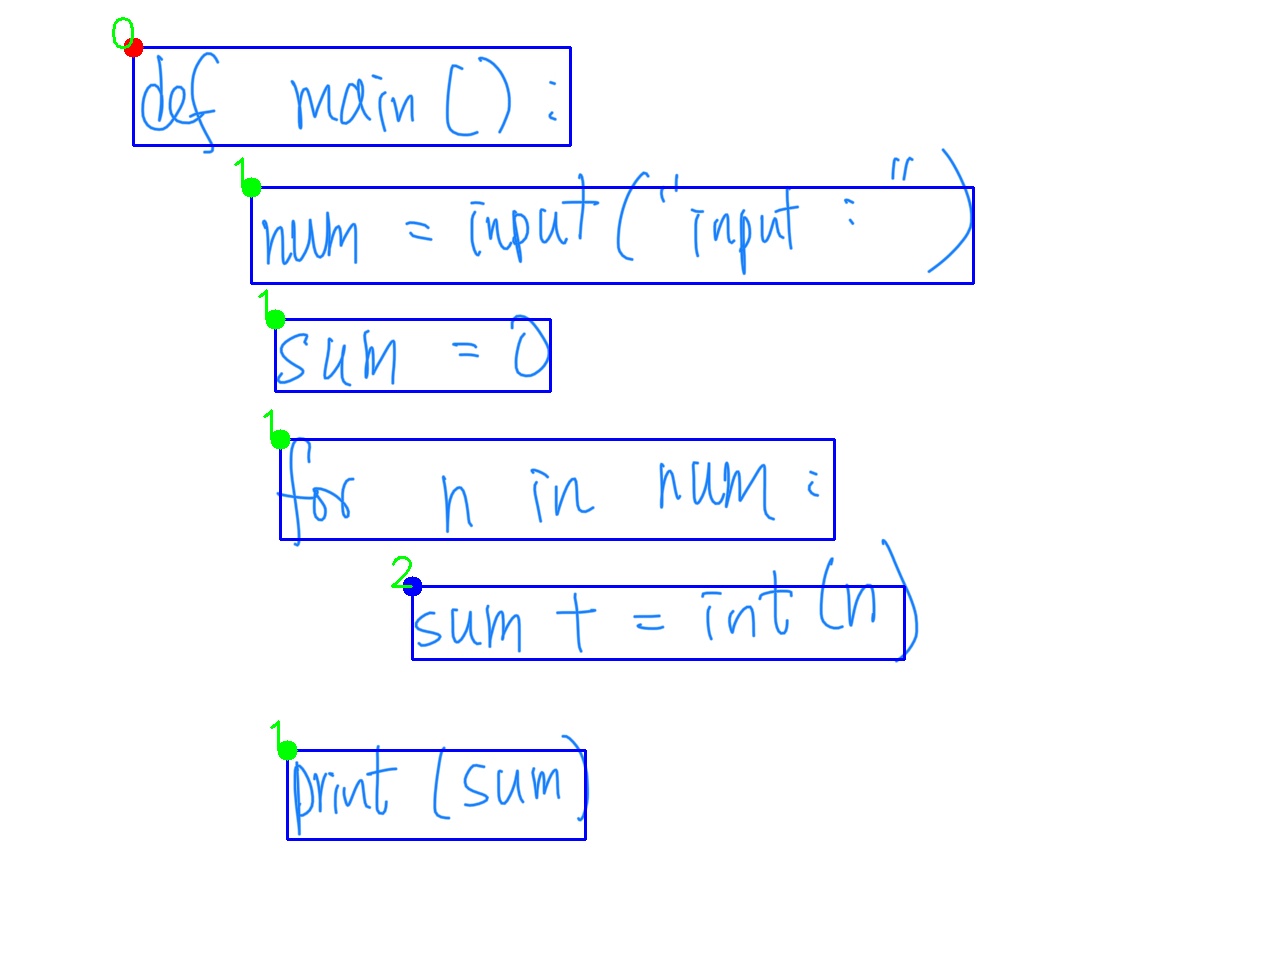 0
def main():
1
num = input("input : ")
1
sum = 0
1
for n in num:
2
sum += int(n)
1
print(sum)